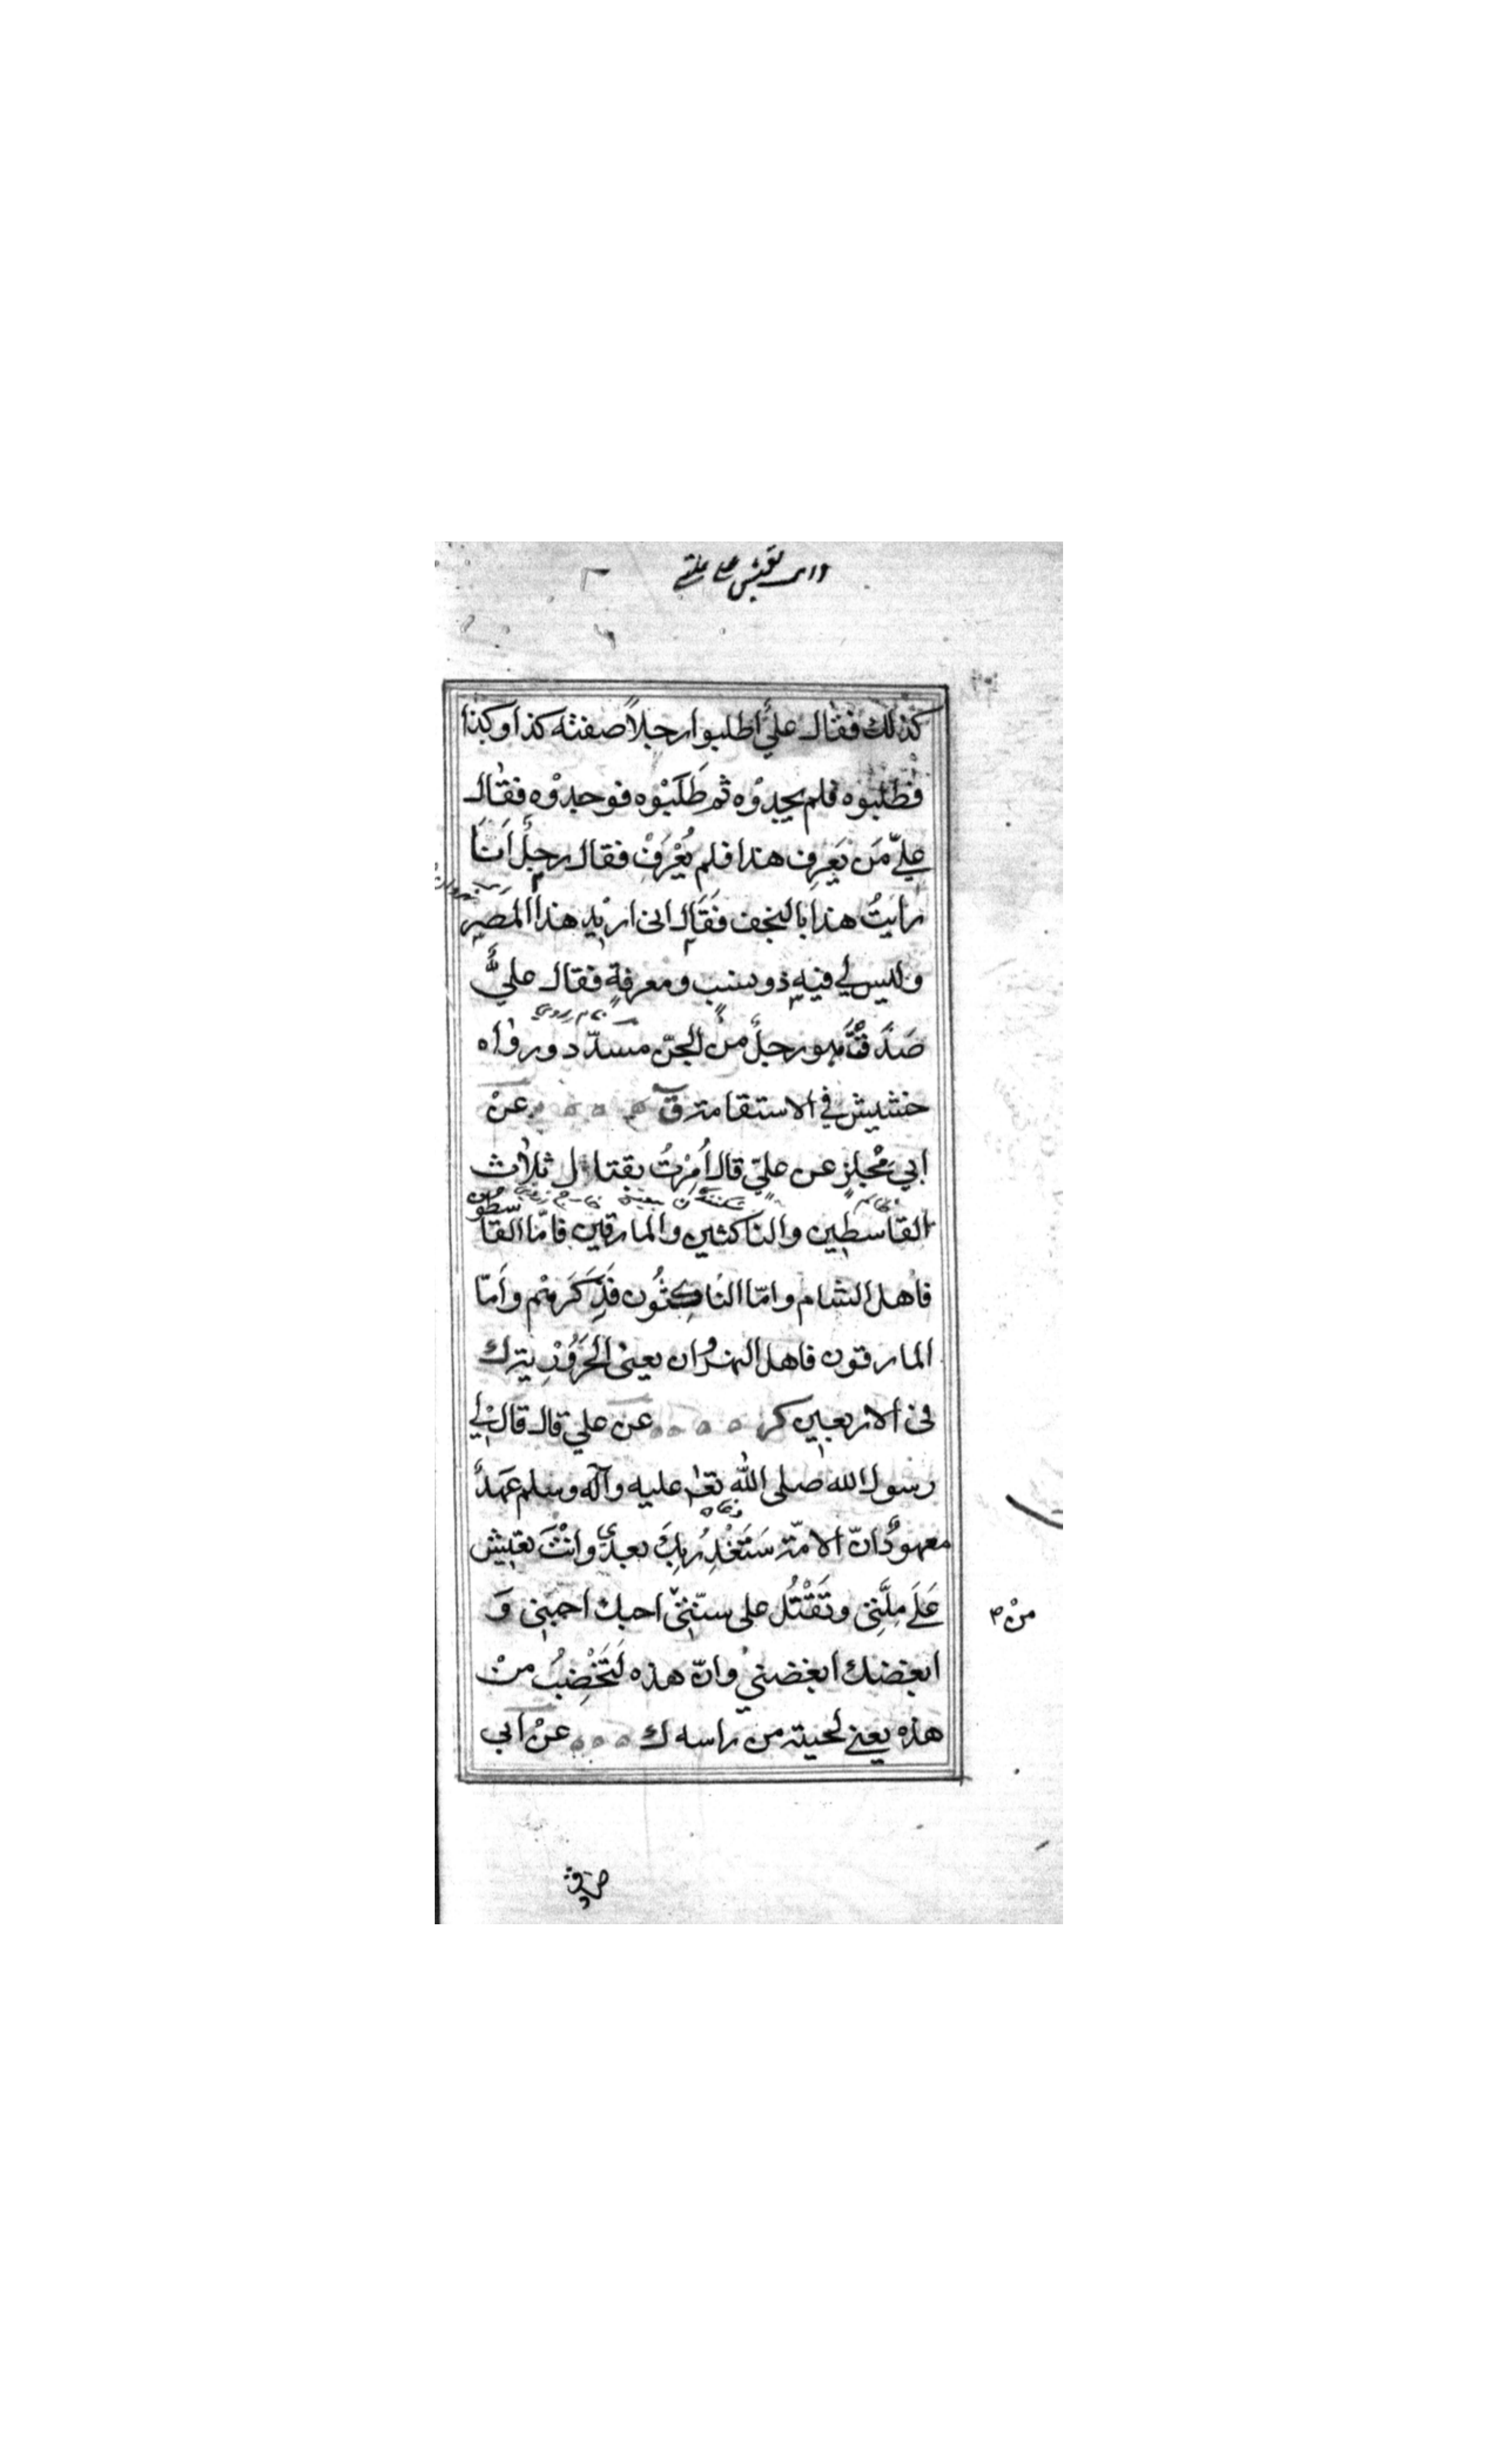 وانت تعيش على ملتي
كذلك فقال عليٌّ اطلبوا رجلاً صفته كذا وكذا
فطلبوه فلم يجدوْه ثم طَلَبُوْه فوجدوْه فقال
عليّ مَن يَعرِف هذا فلم يُعْرَفْ فقال رجلٌ اَنَا
رايتُ هذا بالنجف فقَال انى اريد هذا المصر
وليس لي فيه ذو نسب ومعرفةٍ فقال عليٌّ
صَدَقْتَ هو رجلٌ من الجنّ مسدّد ورواه
خشيش في الاستقامة ق عنْ
ابي مِجْلز عن عليّ قال اُمِرْتُ بقتال ثلاث
القاسطين والناكثين والمارقين فامّا القاسطون
فاهل الشام وامّا الناكِثُون فَذَكَرَهم واَمّا
المارقون فاهل النهروان يعنى الحَرُوْرِيّة ك
فى الاربعين كر عن علي قال قال لي
رسول الله صلى الله تعٰ عليه وآله وسلم عَهدٌ
معهودٌ انّ الامّة سَتَغْدِرُ بِكَ بعدي وانْتَ تعيش
عَلَى مِلَّتِى وتُقْتَل على سنّتِى احبك احبنى وَ
ابغضك ابغضني وانّ هذه لَتُخْضِبُ منْ
هذه يعنى لحيته من راسه ك عنْ ابي
منْ